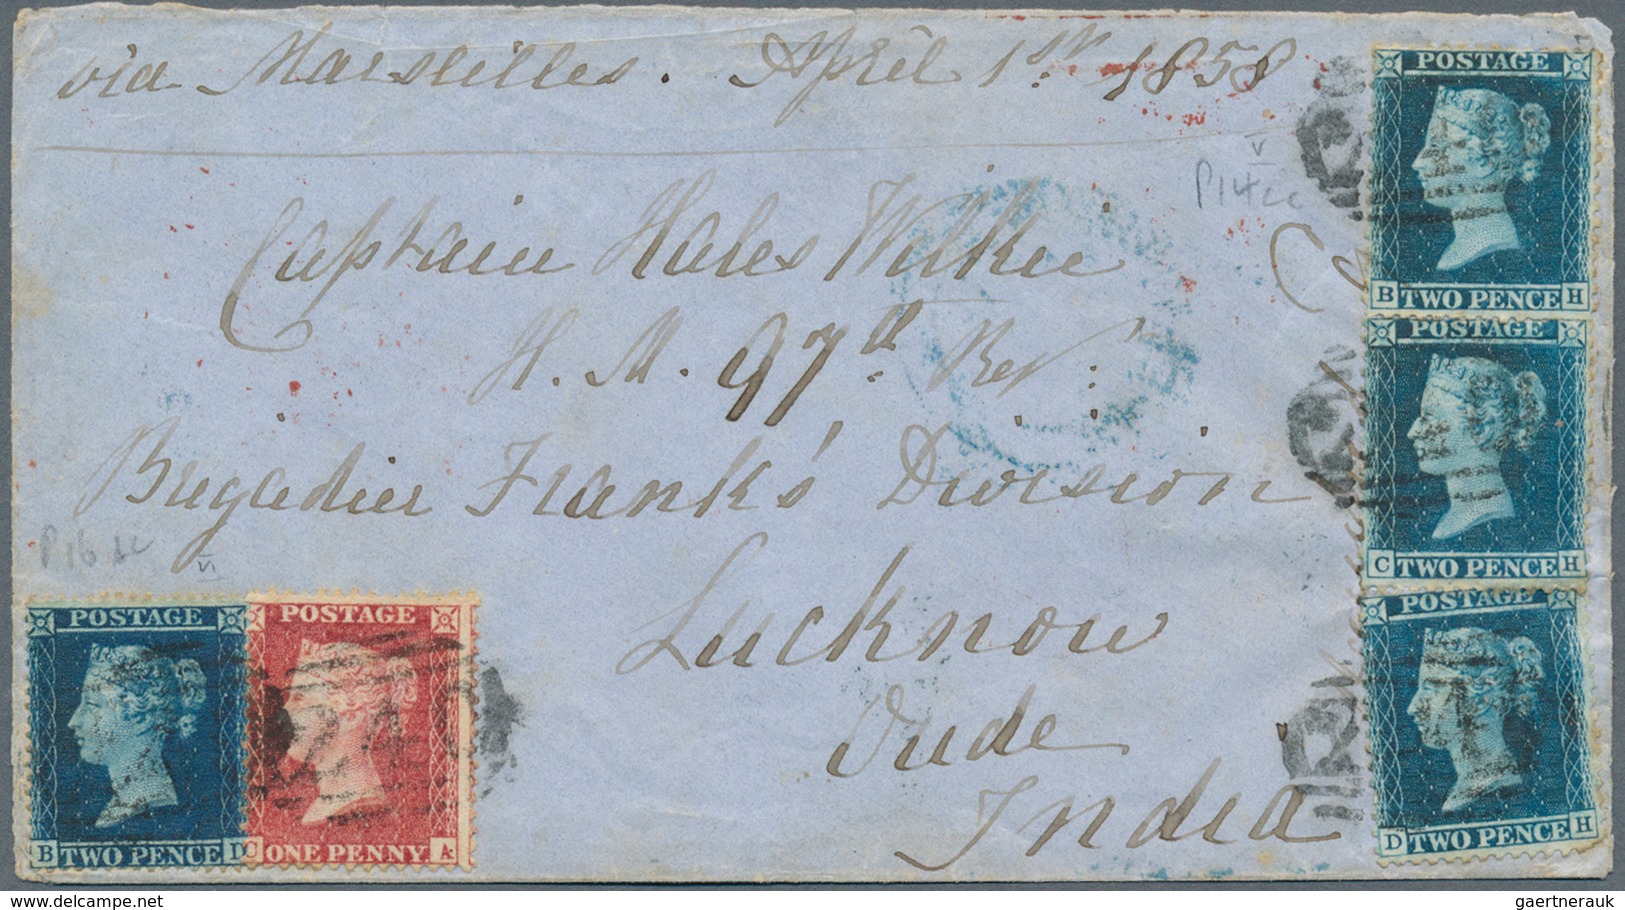 via Marseilles. April 1st. 1858
P14cc
V
Captain Hales Wilkie
H. M. 97th Regt:
Brigadier Frank's Division
Lucknow
Oude
India
P16 LC
VI
POSTAGE
B TWO PENCE H
POSTAGE
C TWO PENCE H
POSTAGE
D TWO PENCE H
POSTAGE
B TWO PENCE
POSTAGE
C ONE PENNY A
24
gaertnerauk